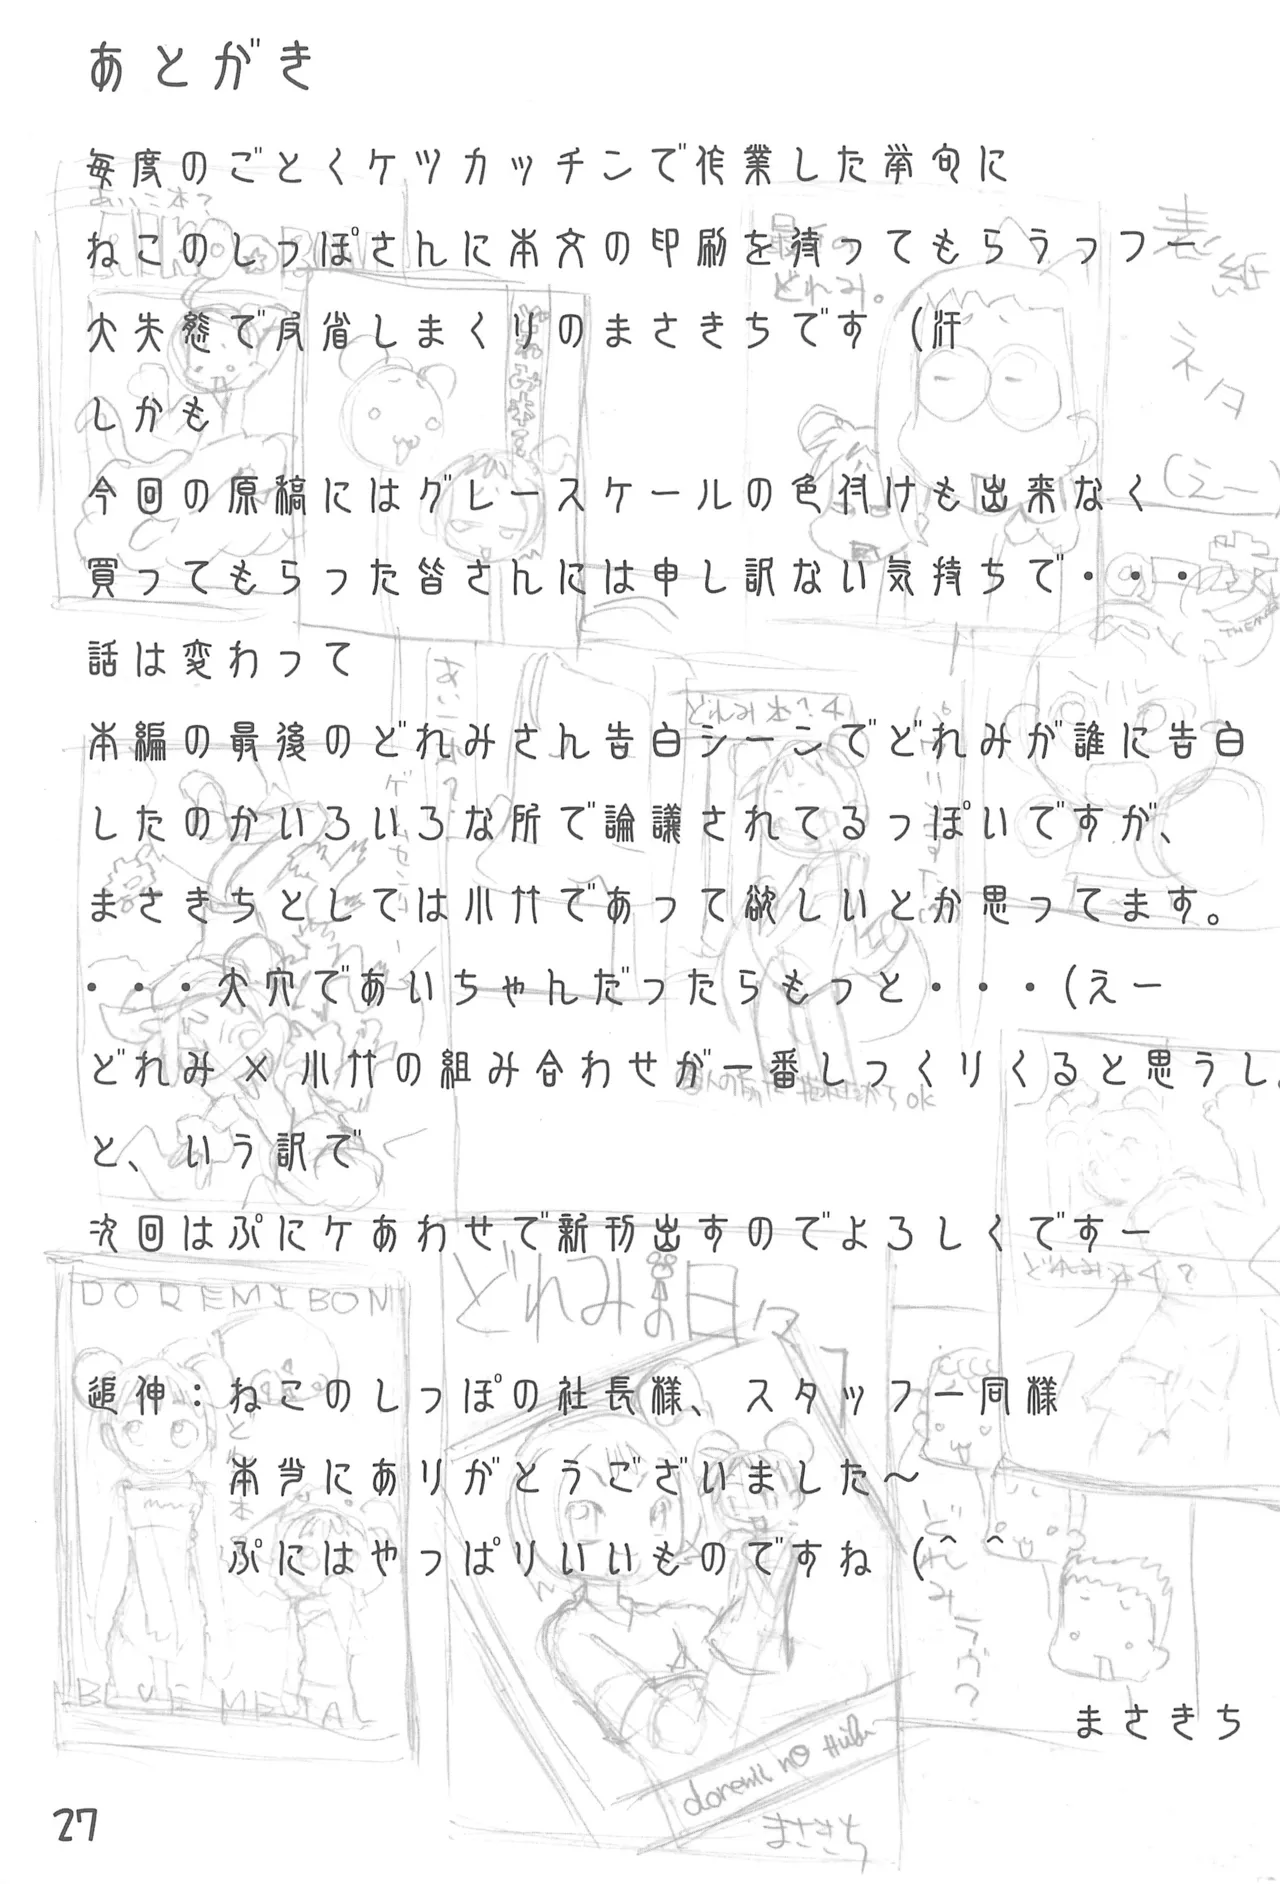 あとがき
毎度のごとくケツカッチンで作業した挙句に
ねこのしっぽさんに本文の印刷を待ってもらうっつー
大失態で反省しまくりのまさきちです（汗
しかも
今回の原稿にはグレースケールの色付けも出来なく
買ってもらった皆さんには申し訳ない気持ちで・・・
話は変わって
本編の最後のどれみさん告白シーンでどれみが誰に告白
したのかいろいろな所で論議されてるっぽいですが、
まさきちとしては小竹であって欲しいとか思ってます。
・・・大穴であいちゃんだったらもっと・・・（えー
どれみ×小竹の組み合わせが一番しっくりくると思うし。
と、いう訳で
次回はぷにケあわせで新刊出すのでよろしくですー
追伸：ねこのしっぽの社長様、スタッフ一同様
本当にありがとうございました～
ぷにはやっぱりいいものですね（＾＾
まさきち
27
あいこ本？
どれみ。
表紙
ネタ
（えー
DOREMI BON
どれみな日々
どれみ本4？
どれみラヴ？
BLUE METAL
doremi no Hibi
まさきち